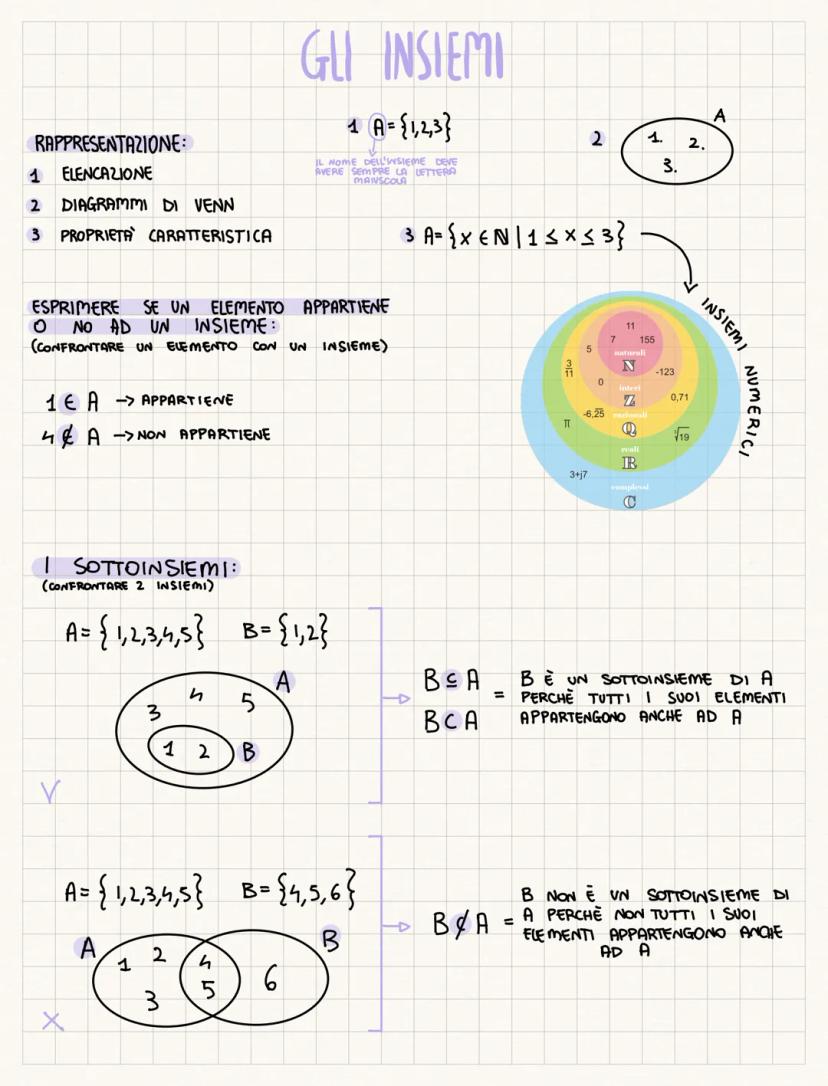 GLI INSIEMI
RAPPRESENTAZIONE:
1 ELENCAZIONE
2 DIAGRAMMI DI VENN
3 PROPRIETÀ CARATTERISTICA
1 A={1,2,3}
IL NOME DELL'INSIEME DEVE
AVERE SEMPRE LA LETTERA
MAIUSCOLA
2
A
1. 2.
3.
3 A={x∈ℕ|1≤x≤3}
INSIEMI NUMERICI
11
7 155
naturali
N
5
3/11
-123
0
interi
Z
0,71
-6,25
razionali
Q
π
∛19
reali
R
3+j7
complessi
C
ESPRIMERE SE UN ELEMENTO APPARTIENE
O NO AD UN INSIEME:
(CONFRONTARE UN ELEMENTO CON UN INSIEME)
1 ∈ A -> APPARTIENE
4 ∉ A -> NON APPARTIENE
I SOTTOINSIEMI:
(CONFRONTARE 2 INSIEMI)
A={1,2,3,4,5} B={1,2}
A
3 4 5
1 2 B
V
B ⊆ A
B ⊂ A
=
B È UN SOTTOINSIEME DI A
PERCHÈ TUTTI I SUOI ELEMENTI
APPARTENGONO ANCHE AD A
A={1,2,3,4,5} B={4,5,6}
A B
1 2 4
3 5 6
X
B ⊄ A =
B NON È UN SOTTOINSIEME DI
A PERCHÈ NON TUTTI I SUOI
ELEMENTI APPARTENGONO ANCHE
AD A